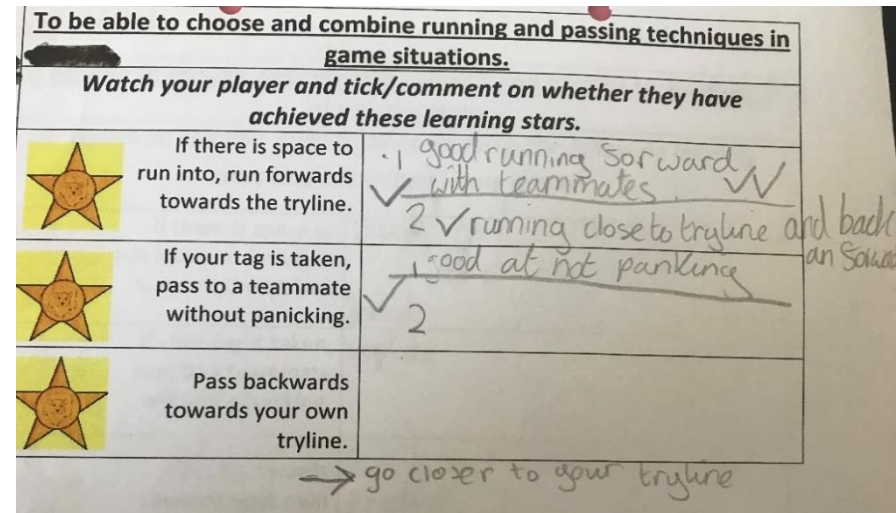 To be able to choose and combine running and passing techniques in
game situations.
Watch your player and tick/comment on whether they have
achieved these learning stars.
If there is space to
run into, run forwards
towards the tryline.
.1 good running Sorward
✓ with teammates. ✓✓
2 ✓ running close to tryline and back
an Sorward
If your tag is taken,
pass to a teammate
without panicking.
1 good at not panking
✓
2
Pass backwards
towards your own
tryline.
→ go closer to your tryline